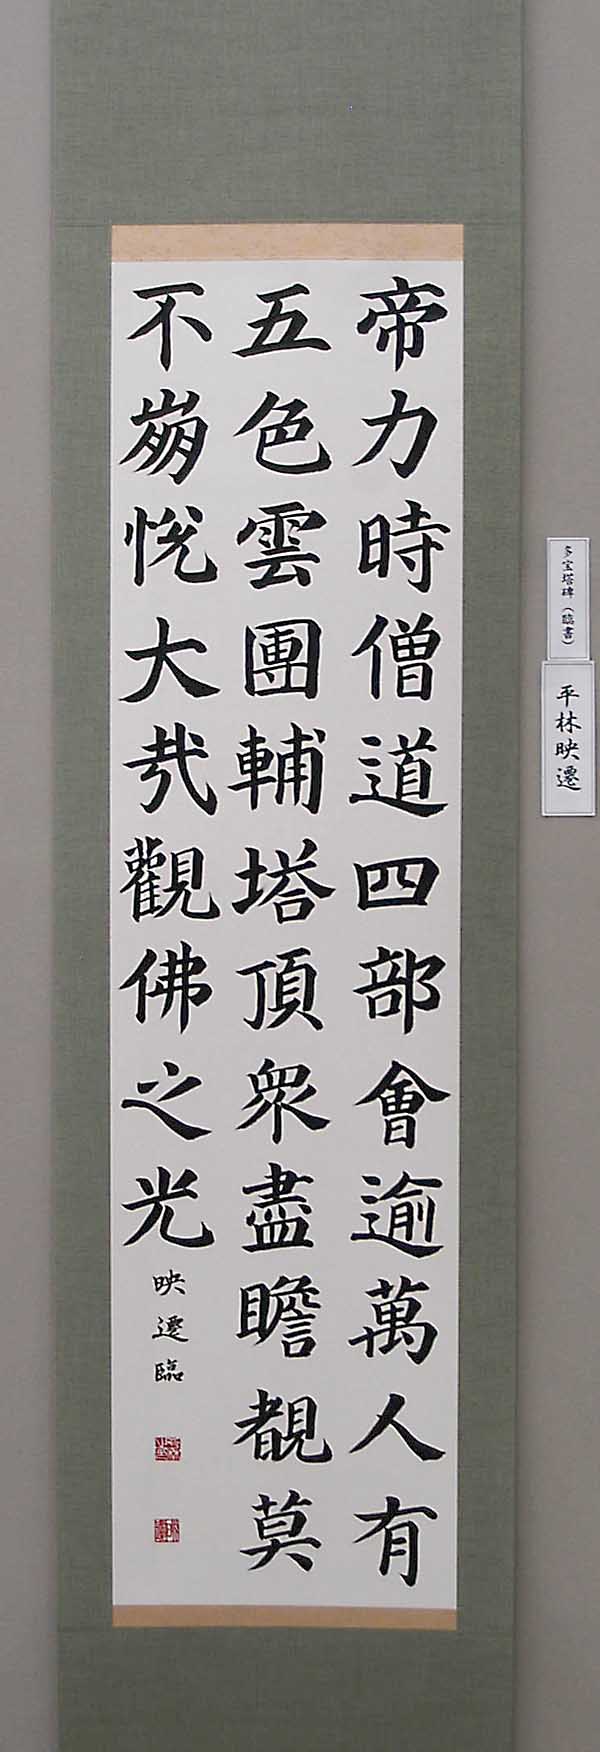 帝力時僧道四部會逾萬人有
五色雲團輔塔頂衆盡瞻覩莫
不崩悅大哉觀佛之光
映遷臨
多宝塔碑（臨書）
平林映遷